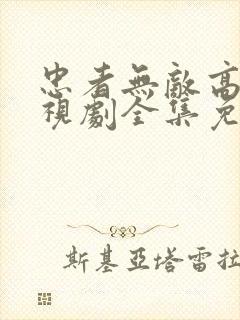 忠者無敵高
視劇全集免
斯基亞塔雷拉